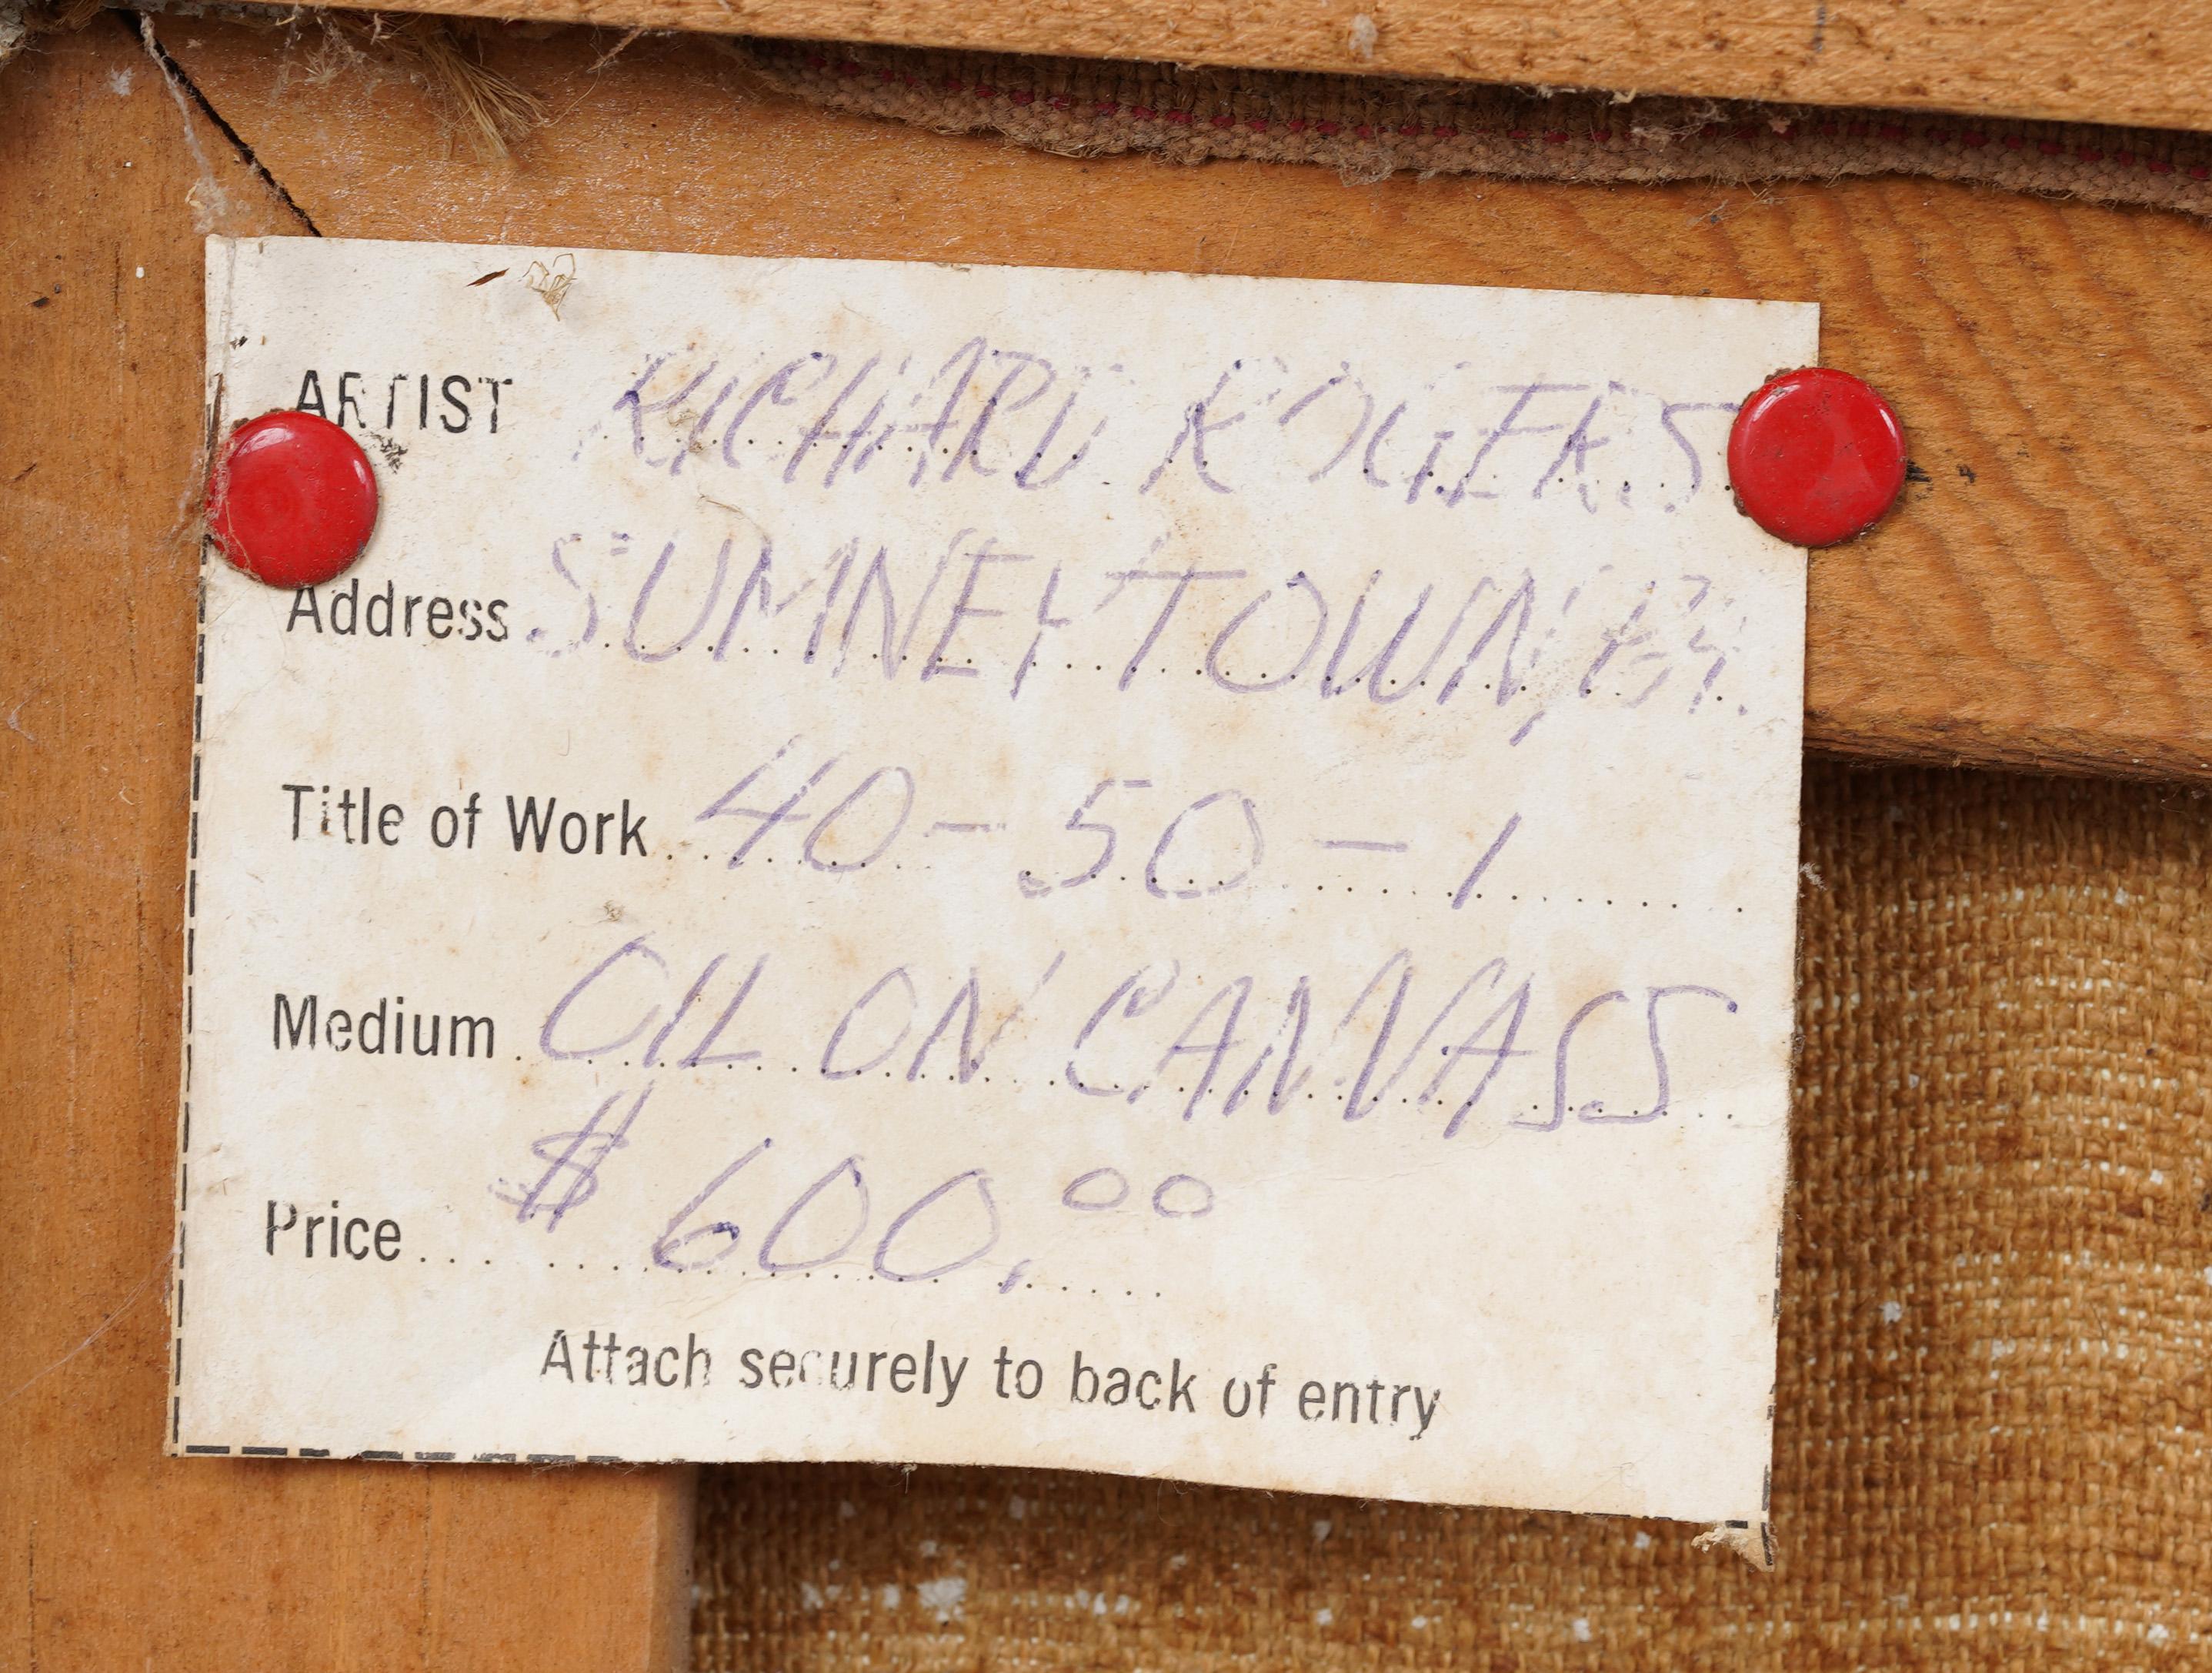 ARTIST RICHARD ROGERS
Address SUMNEYTOWN, PA.
Title of Work 40-50-1
Medium OIL ON CANVASS
Price $600.00
Attach securely to back of entry